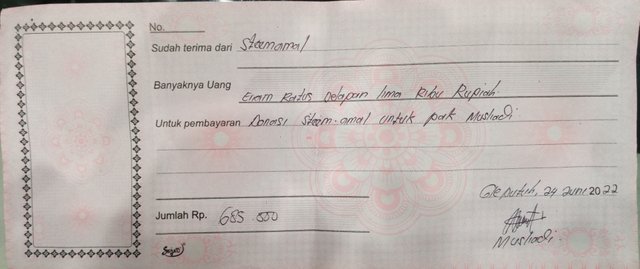 No.
Sudah terima dari Steamamal
Banyaknya Uang
Enam Ratus Delapan lima Ribu Rupiah.
Untuk pembayaran Donasi Steam-amal untuk pak Musliadi
24 Juni 2022
Jumlah Rp. 685 000
Musliadi.